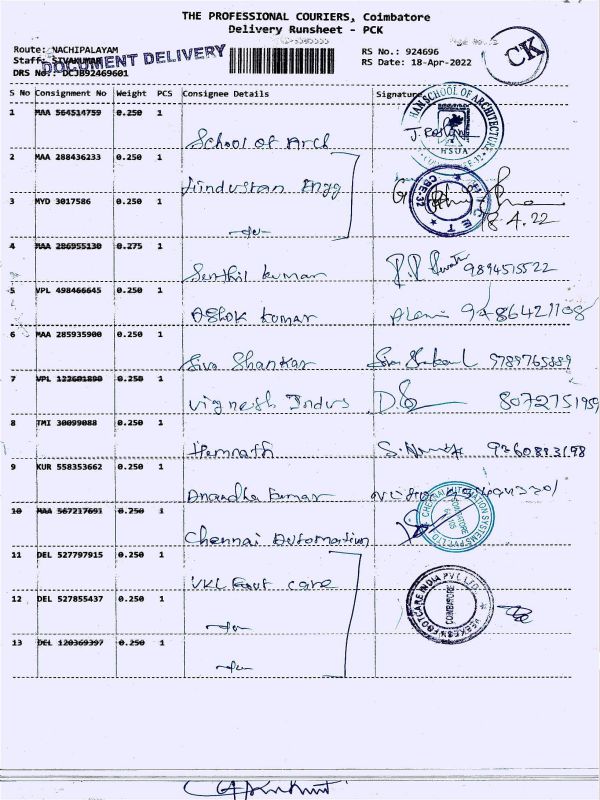 THE PROFESSIONAL COURIERS, Coimbatore
Delivery Runsheet - PCK
Route: NACHIPALAYAM
Staff: SIVAKUMAR
DOCUMENT DELIVERY
DRS No.: DCJB92469601
RS No.: 924696
RS Date: 18-Apr-2022
CK
S No Consignment No Weight PCS Consignee Details Signature
1 MAA 564514759 0.250 1 School of Arch
HSUA
2 MAA 288436233 0.250 1 Hindustan Engg
3 MYD 3017586 0.250 1 -do-
18.4.22
4 MAA 286955130 0.275 1 Senthil kumar 9894515522
5 VPL 498466645 0.250 1 Ashok kumar 9486421108
6 MAA 285935900 0.250 1 Siva Shankar 9789765889
7 VPL 122601890 0.250 1 Vignesh Indus 8072751959
8 TMI 30099088 0.250 1 Hemnath
9 KUR 558353662 0.250 1 Anandha kumar
10 MAA 567217691 0.250 1 Chennai Automation
11 DEL 527797915 0.250 1 VKL Foot care
12 DEL 527855437 0.250 1 -do-
13 DEL 120369397 0.250 1 -do-